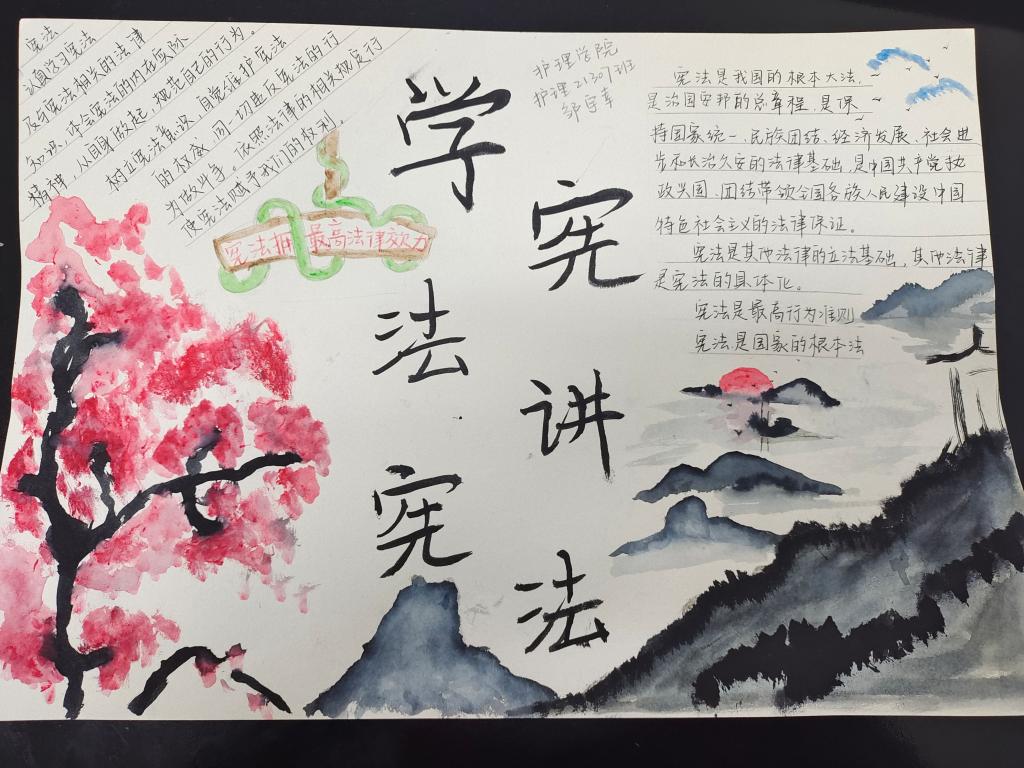 宪法
认真学习宪法
及与宪法相关的法律
知识，体会宪法的内在实际
精神，从自身做起，规范自己的行为。
树立宪法意识，自觉维护宪法
的权威，同一切违反宪法的行
为做斗争。依照法律的相关规定行
使宪法赋予我们的权利。
宪法拥 最高法律效力
学
宪
法
讲
宪
法
护理学院
护理21307班
宪法是我国的根本大法，
是治国安邦的总章程，是保
持国家统一、民族团结、经济发展、社会进
步和长治久安的法律基础，是中国共产党执
政兴国、团结带领全国各族人民建设中国
特色社会主义的法律保证。
宪法是其他法律的立法基础，其他法律
是宪法的具体化。
宪法是最高行为准则
宪法是国家的根本法